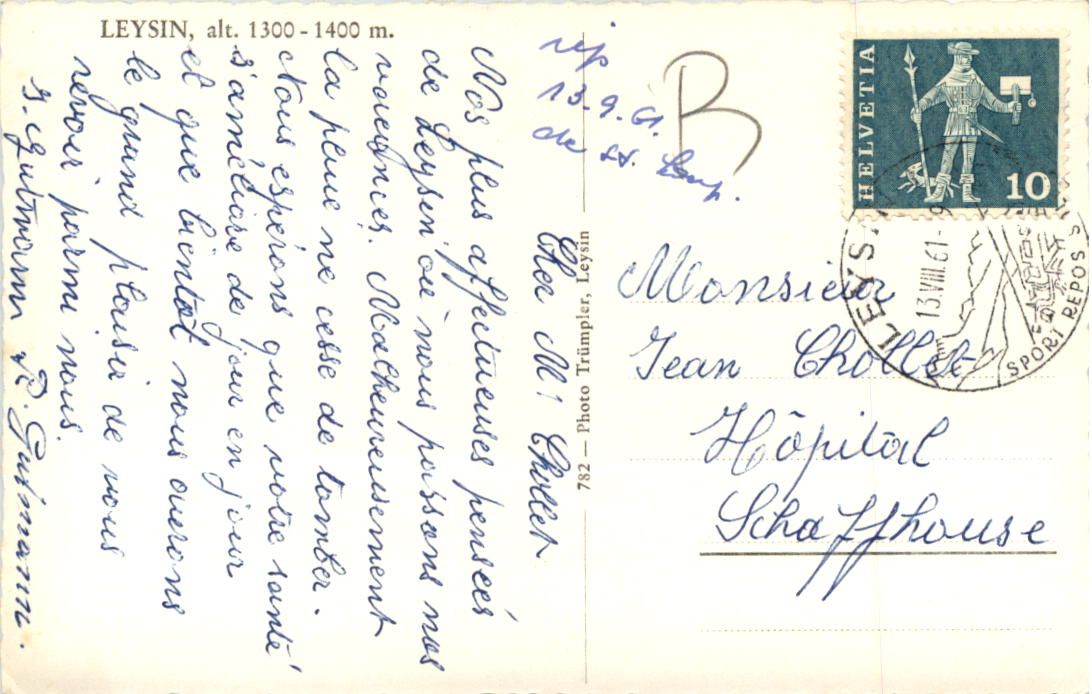 LEYSIN, alt. 1300-1400 m.
Cher M! Chollet
Nos plus affectueuses pensées
de Leysin où nous passons nos
vacances. Malheureusement
la pluie ne cesse de tomber.
Nous espérons que votre santé
s'améliore de jour en jour
et que bientôt nous aurons
le grand plaisir de vous
revoir parmi nous.
R. Gutmann
782 — Photo Trümpler, Leysin
rép
13.9.61.
de
B
HELVETIA
10
LEYSIN
13.VIII.61-
SPORT REPOS S
Monsieur
Jean Chollet
Hôpital
Schaffhouse